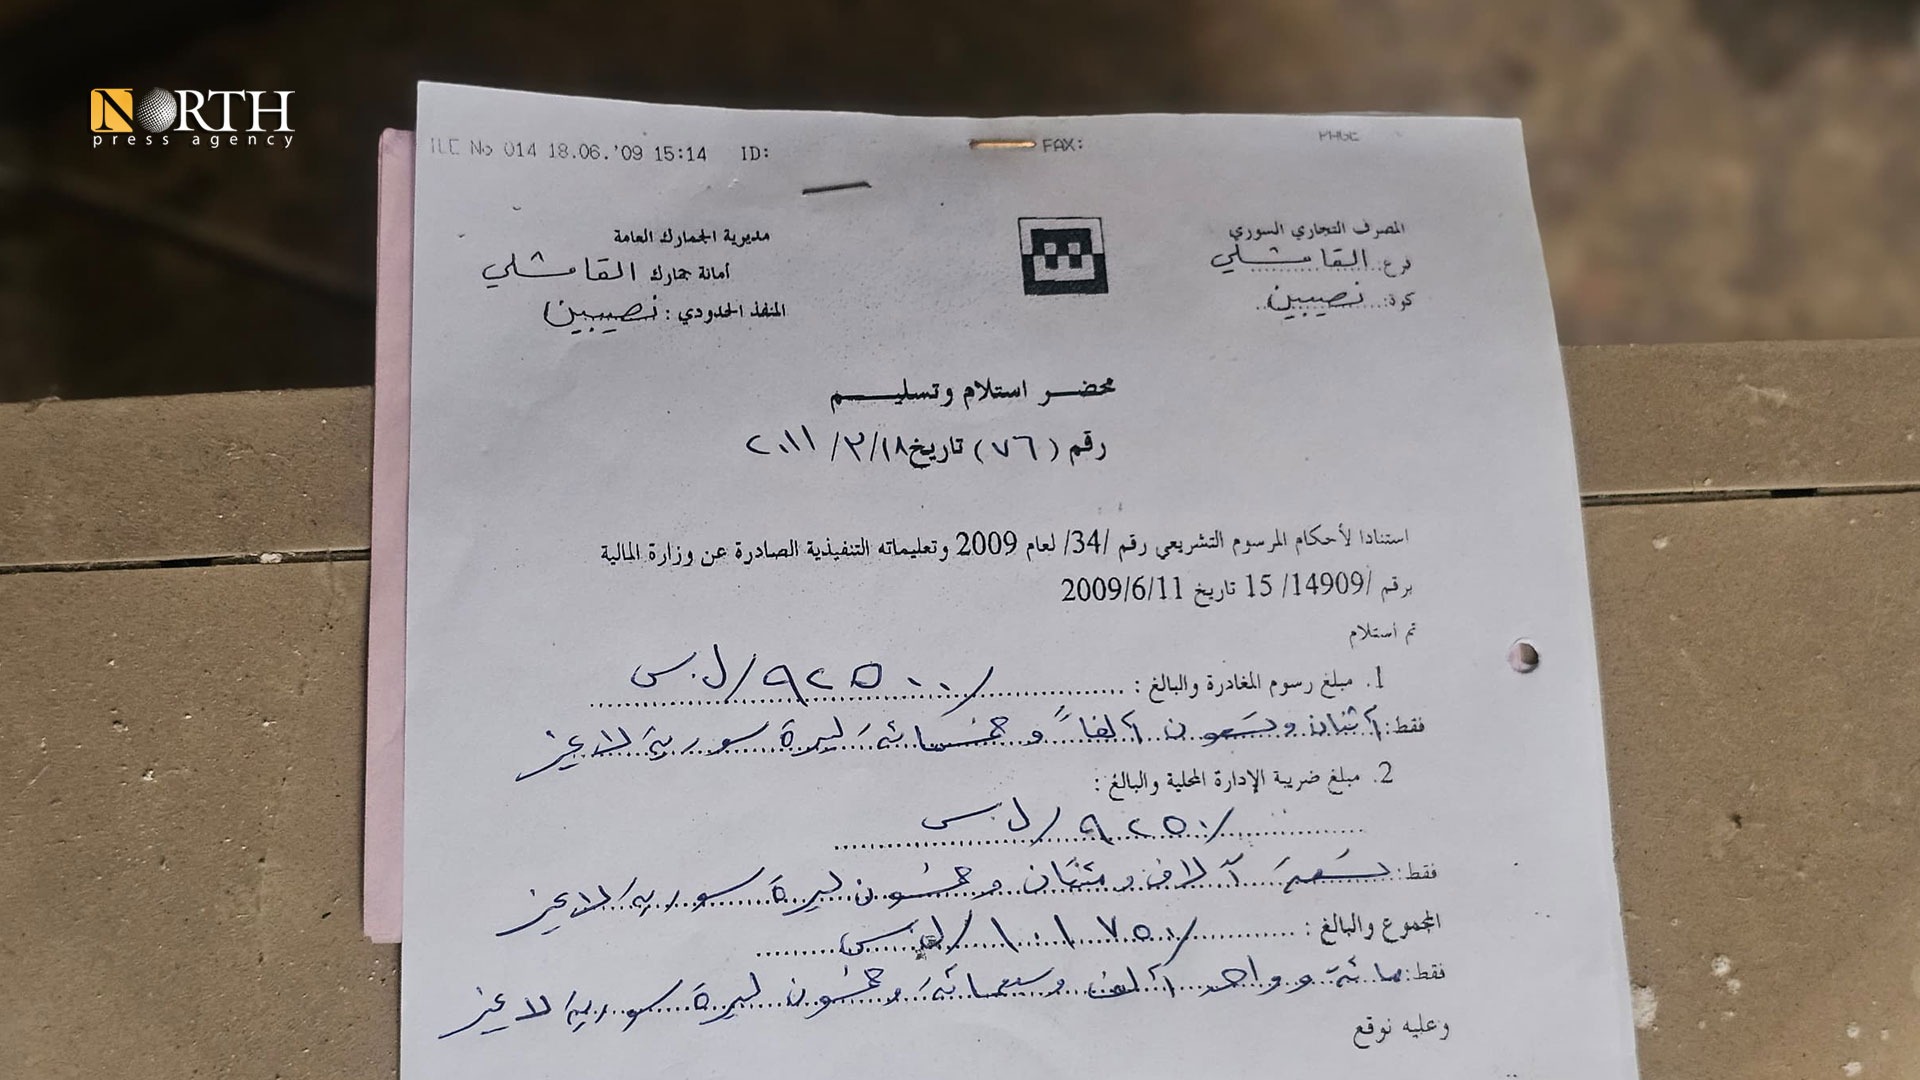 NORTH
press agency
ILE No 014 18.06.'09 15:14 ID: FAX: PAGE
المصرف التجاري السوري
فرع: القامشلي
كوة: نصيبين
مديرية الجمارك العامة
أمانة جمارك القامشلي
المنفذ الحدودي: نصيبين
محضر استلام وتسليم
رقم (٧٦) تاريخ ١٨/٣/٢٠١١
استنادا لأحكام المرسوم التشريعي رقم /34/ لعام 2009 وتعليماته التنفيذية الصادرة عن وزارة المالية
برقم /14909/ 15 تاريخ 2009/6/11
تم استلام
1. مبلغ رسوم المغادرة والبالغ: /٩٢٥٠٠/ ل.س
فقط: اثنان وتسعون ألفاً و خمسمائة ليرة سورية لا غير
2. مبلغ ضريبة الإدارة المحلية والبالغ:
/٩٢٥٠/ ل.س
فقط: تسعة آلاف و مئتان و خمسون ليرة سورية لا غير
المجموع والبالغ: /١٠١٧٥٠/ ل.س
فقط: مائة وواحد ألف وسبعمائة وخمسون ليرة سورية لا غير
وعليه نوقع